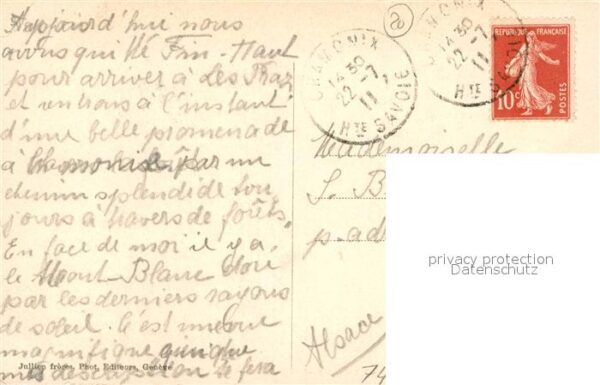 Aujourd'hui nous
avons quitté Fin-Haut
pour arriver à Les Praz
et rentrons à l'instant
d'une belle promenade
à Chamonix par un
chemin splendide tou
jours à travers de forêts.
En face de moi il y a
le Mont Blanc doré
par les derniers rayons
de soleil. C'est
magnifique
description se fera
Jullien frères, Phot. Editeurs, Genève
CHAMONIX
14 30
22 - 7
11
HTE SAVOIE
CHAMONIX
14 30
22 - 7
11
HTE SAVOIE
REPUBLIQUE FRANÇAISE
10c
POSTES
Mademoiselle
S. B
p. ad
Alsace
74
privacy protection
Datenschutz